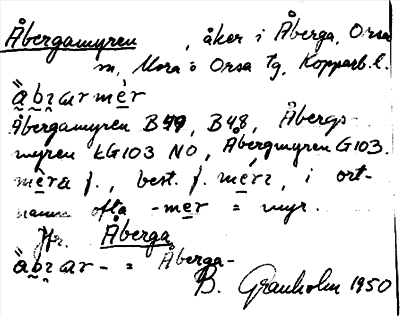 Åbergamyren, åker i Åberga, Orsa
m, Mora o Orsa tg, Kopparb. l.
åbrarmer
Åbergamyren B49, B48, Åbergs-
myren EG103 NO, Åbergmyren G103.
mera f., best. f. merz, i ort-
namn ofta -mer = myr.
Jfr. Åberga
åbrar- = Åberga-
B. Granholm 1950